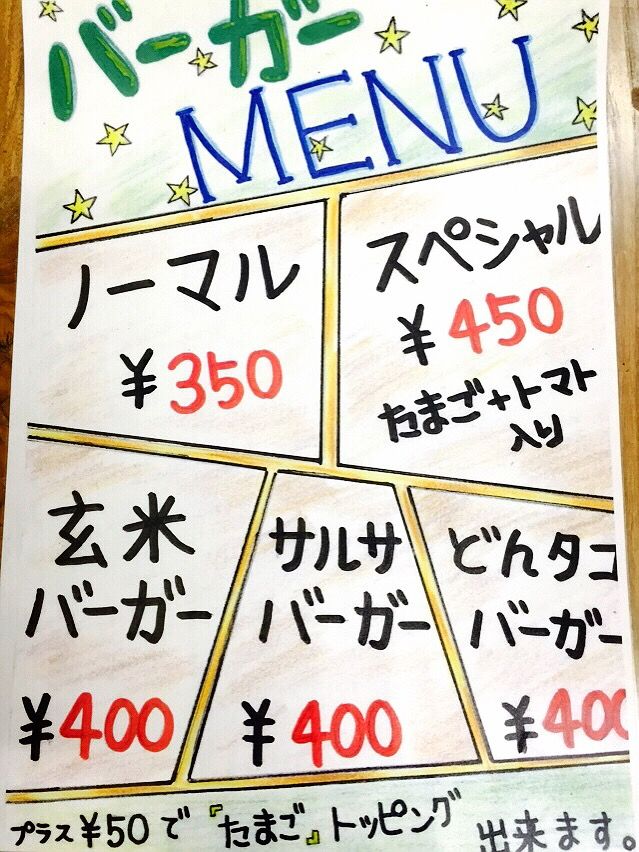 バーガー
MENU
ノーマル
¥350
スペシャル
¥450
たまご+トマト
入り
玄米
バーガー
¥400
サルサ
バーガー
¥400
どんタコ
バーガー
¥400
プラス¥50で『たまご』トッピング出来ます。